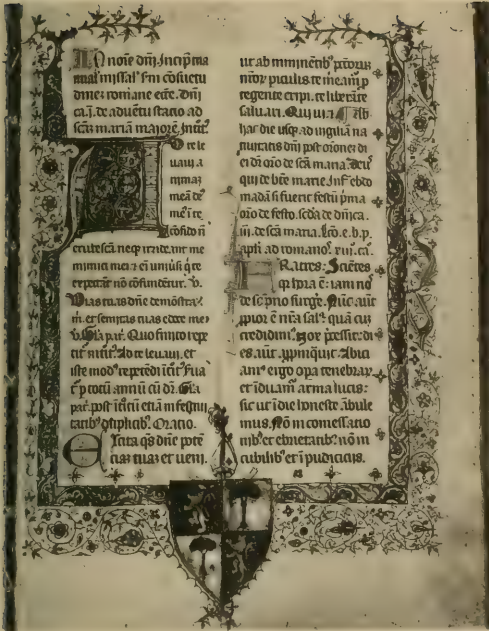 IN noīe dñi. Incipit ma
nual missal' sm cōsuetu
dinez romane ecce. Dñi
ca .i. de aduētu statio ad
scāz mariā maiorē. Introit'
AD te le
uaui a
nimaz
meā de'
me' ī te
cōfido nō
erubescā neqz irrideāt me
inimici mei et eni uniūsi q te
expectāt nō cōfundētur. v.
Uias tuas dñe demōstra
m. et semitas tuas edoce me
v. Gla pat'. Quo finito repe
tit' Ad te leuaui. et
iste mod' repetēdi
t' p totū annū cū dr. Gla
pat. post itōitū etiā in festiui
tatib' dupplicib'. Oratio.
Excita qs dñe potē
ciaz tuaz et ueni.
ut ab iminētib' pctōruz
nrōr piculis te meam' p
tegente eripi. te liberāte
saluari. Qui uiuis
har die usqz ad ingiliā na
tiuitatis dñi post orōnez di
ei dr orō de scā maria. Deus
qui de btē marie. Inf' ebdo
madā si fuerit festū pma
orō de festo. scda de dñica.
iii. de scā maria. Lcō. e. b. p.
apli ad romanos. xiii. ca.
Fratres: Sciētes
qz hora ē: iam nos
de sōpno surge. Nūc aut
ppior ē nrā sal' quā cuz
credidim'. Nox pcessit: di
es aut appinquit. Abici
am' ergo opa tenebrarz
et iduam' arma lucis:
sic ut i die honeste ābule
mus. Nō in comessatio
nib' et ebrietatib': nō in
cubilib' et ipudicicijs.